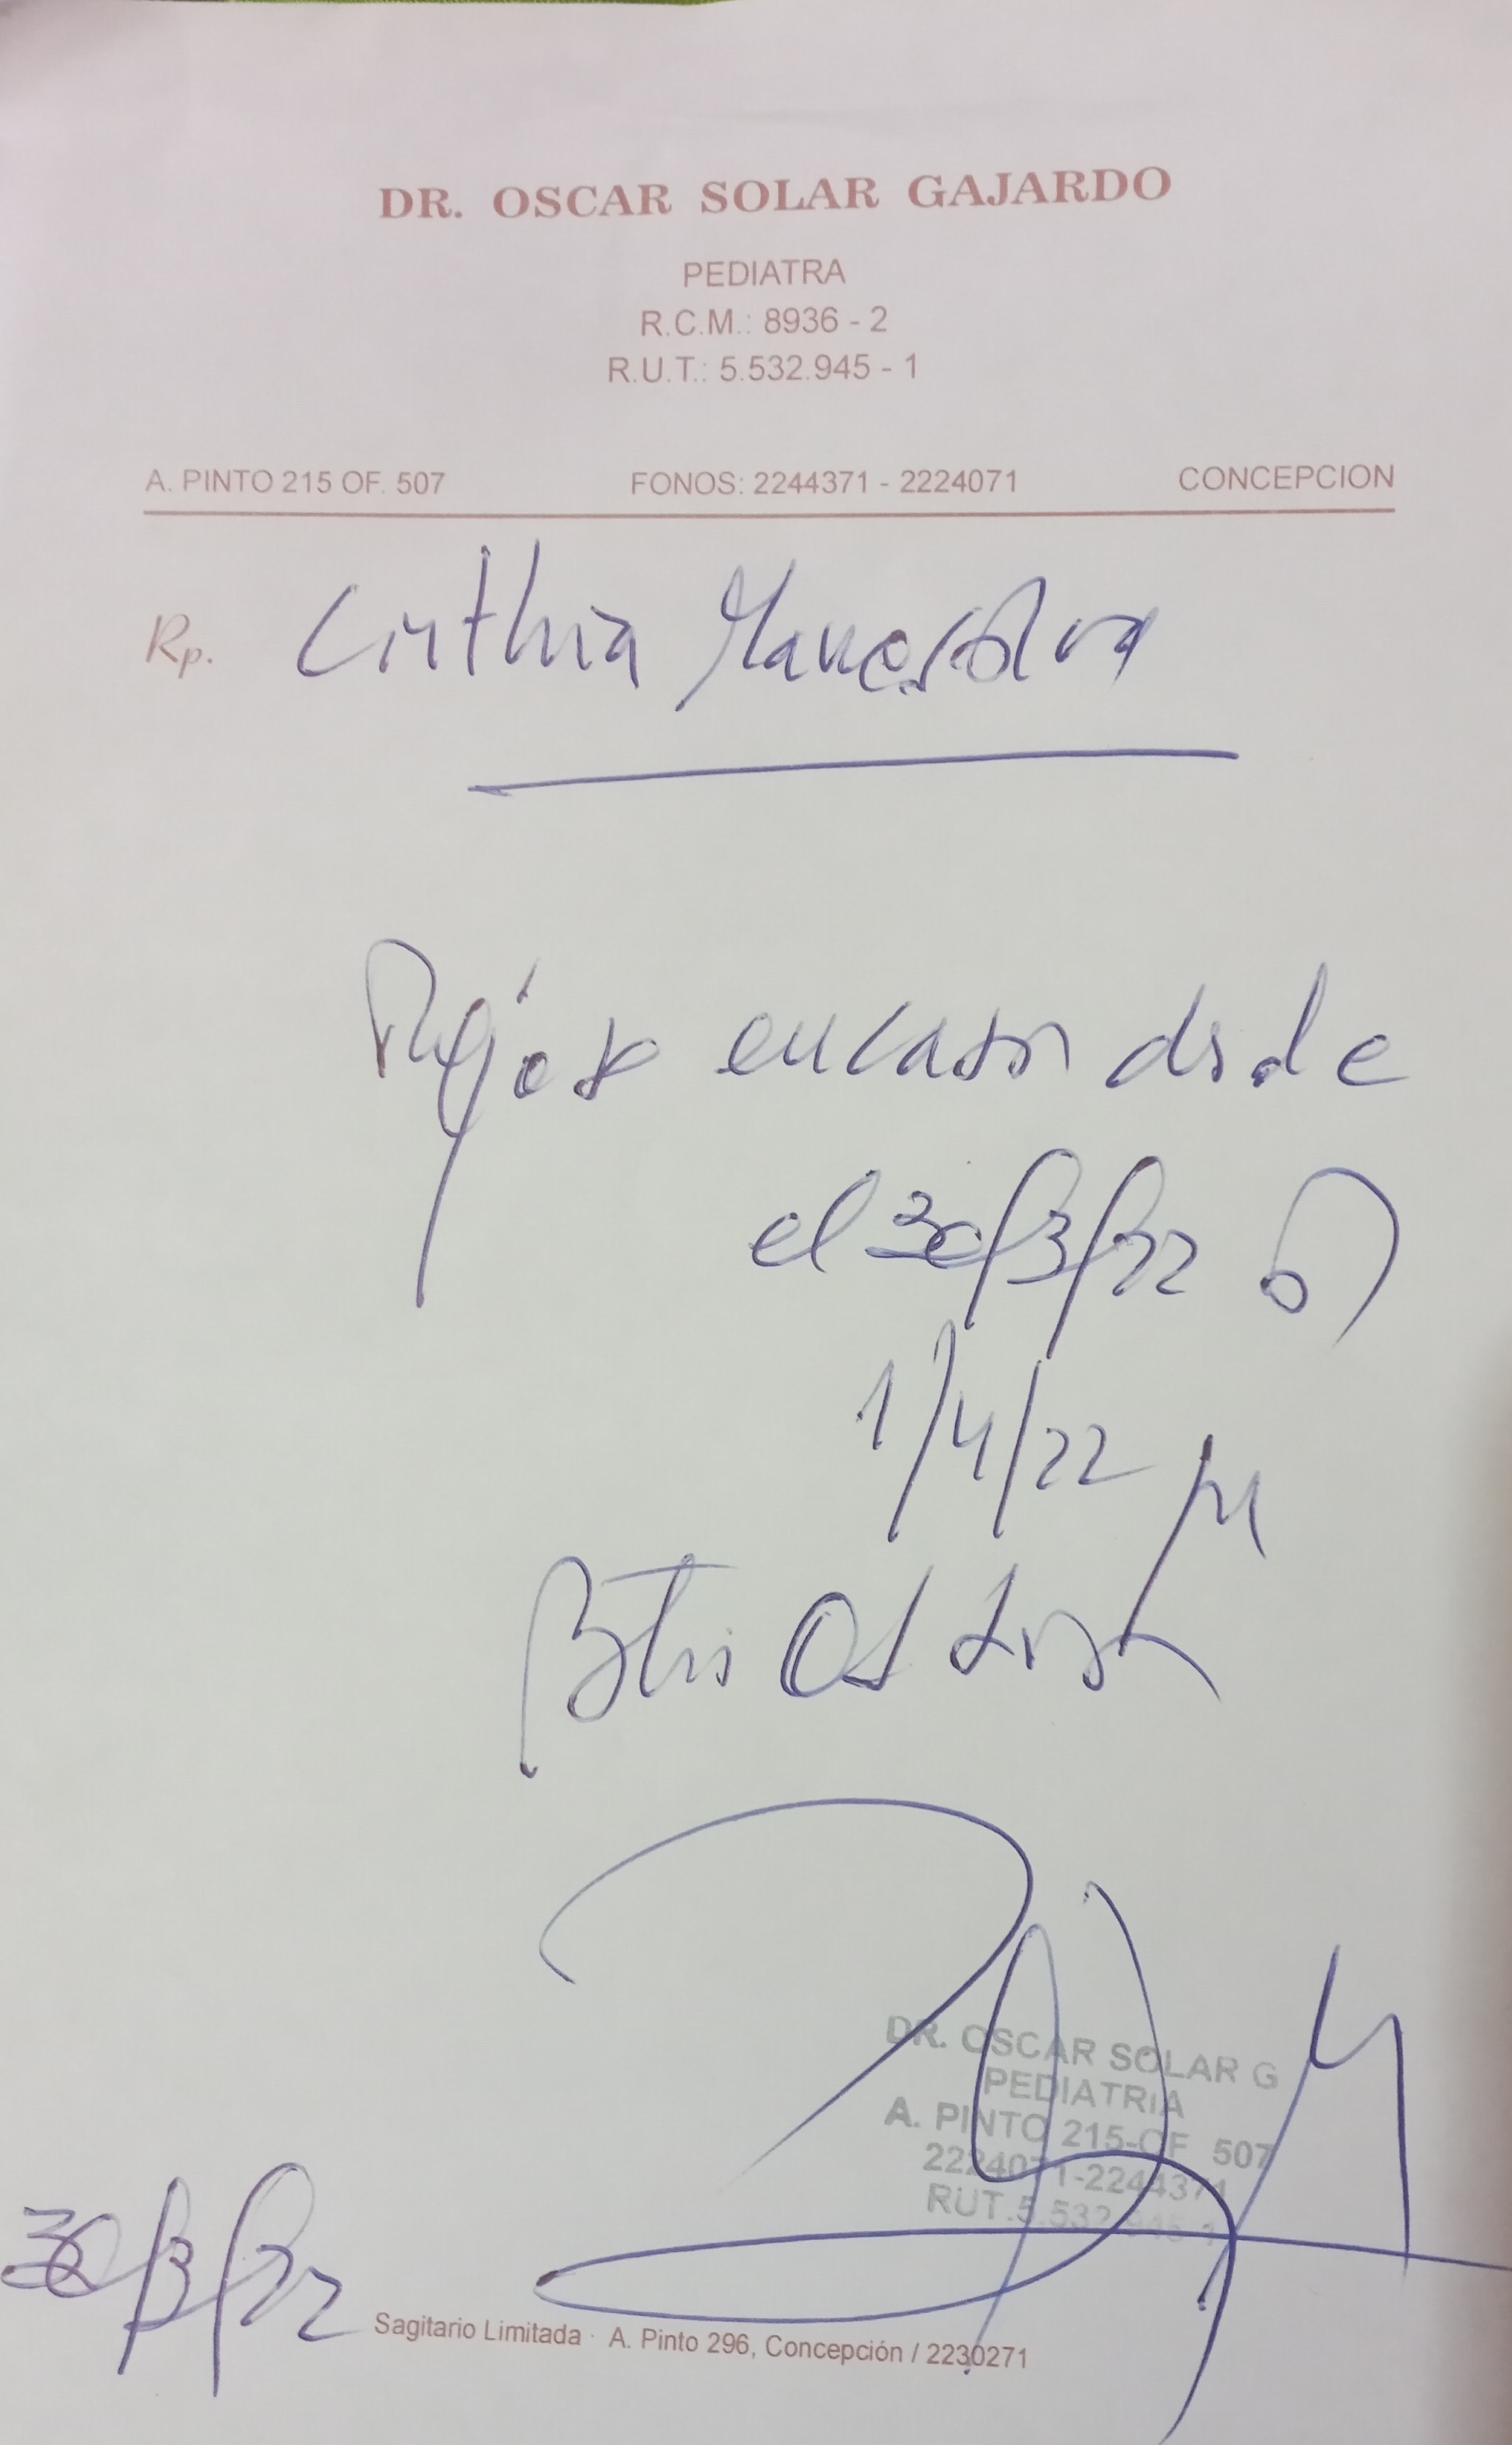 DR. OSCAR SOLAR GAJARDO
PEDIATRA
R.C.M.: 8936 - 2
R.U.T.: 5.532.945 - 1
A. PINTO 215 OF. 507 FONOS: 2244371 - 2224071 CONCEPCION
Rp. Cinthia
en casa desde
el 30/3/22 al
1/4/22
DR. OSCAR SOLAR G
PEDIATRIA
A. PINTO 215-OF 507
2224071-2244371
RUT.5.532.945-1
30/3/22
Sagitario Limitada · A. Pinto 296, Concepción / 2230271